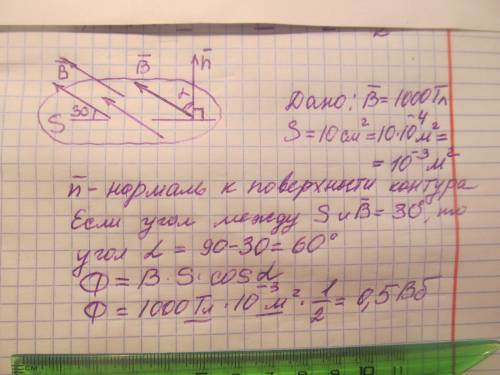 B̄ B̄ n̄
α
30°
S
Дано: B̄ = 1000Тл
S = 10 см² = 10·10⁻⁴ м² =
= 10⁻³ м²
n̄ - нормаль к поверхности контура
Если угол между S и B̄ = 30°, то
угол α = 90-30 = 60°
Ф = B · S · cos α
Ф = 1000 Тл · 10⁻³ м² · 1/2 = 0,5 Вб
см 1 2 3 4 5 6 7 8 9 10 11